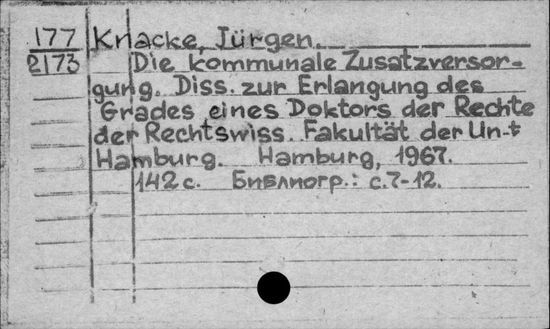 177 Knacke, Jürgen.
2173 Die kommunale Zusatzversor-
gung. Diss. zur Erlangung des
Grades eines Doktors der Rechte
der Rechtswiss. Fakultät der Un-t
Hamburg. Hamburg, 1967.
142 с. Библиогр.: с.7-12.